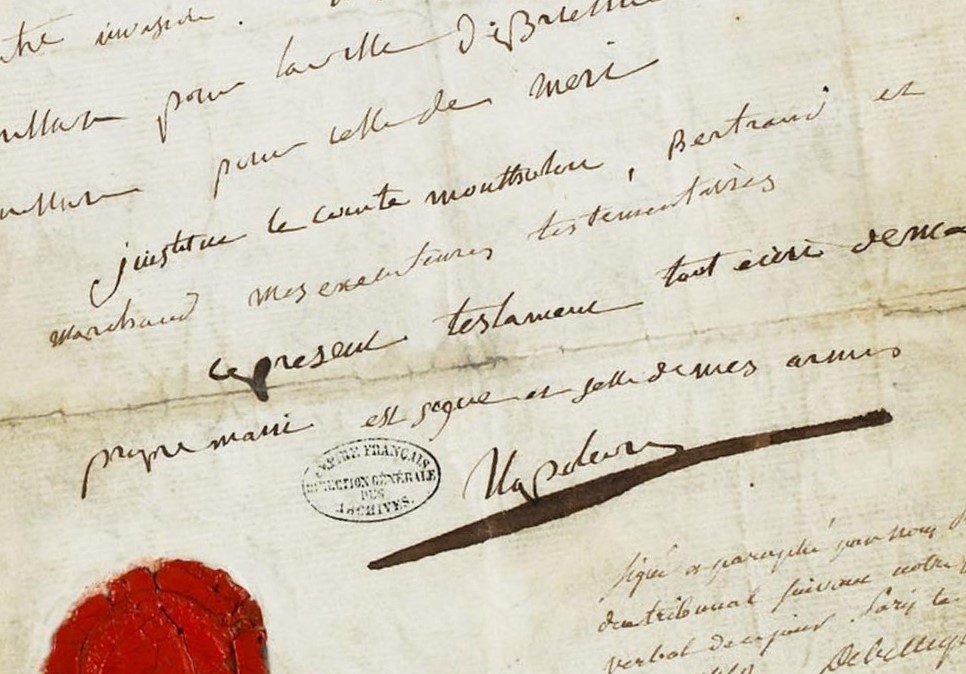 invasion.
pour la ville de Brienne
pour celle de meri
j'institue le comte montholon, Bertrand et
marchand mes executeures testementaires
ce present testament tout ecrit de ma
propre main est signé et sellé de mes armes
Napoleon
EMPIRE FRANÇAIS
DIRECTION GÉNÉRALE
DES
ARCHIVES.
signé et paraphé par nous
du tribunal suivant notre
verbal de ce jour Paris le